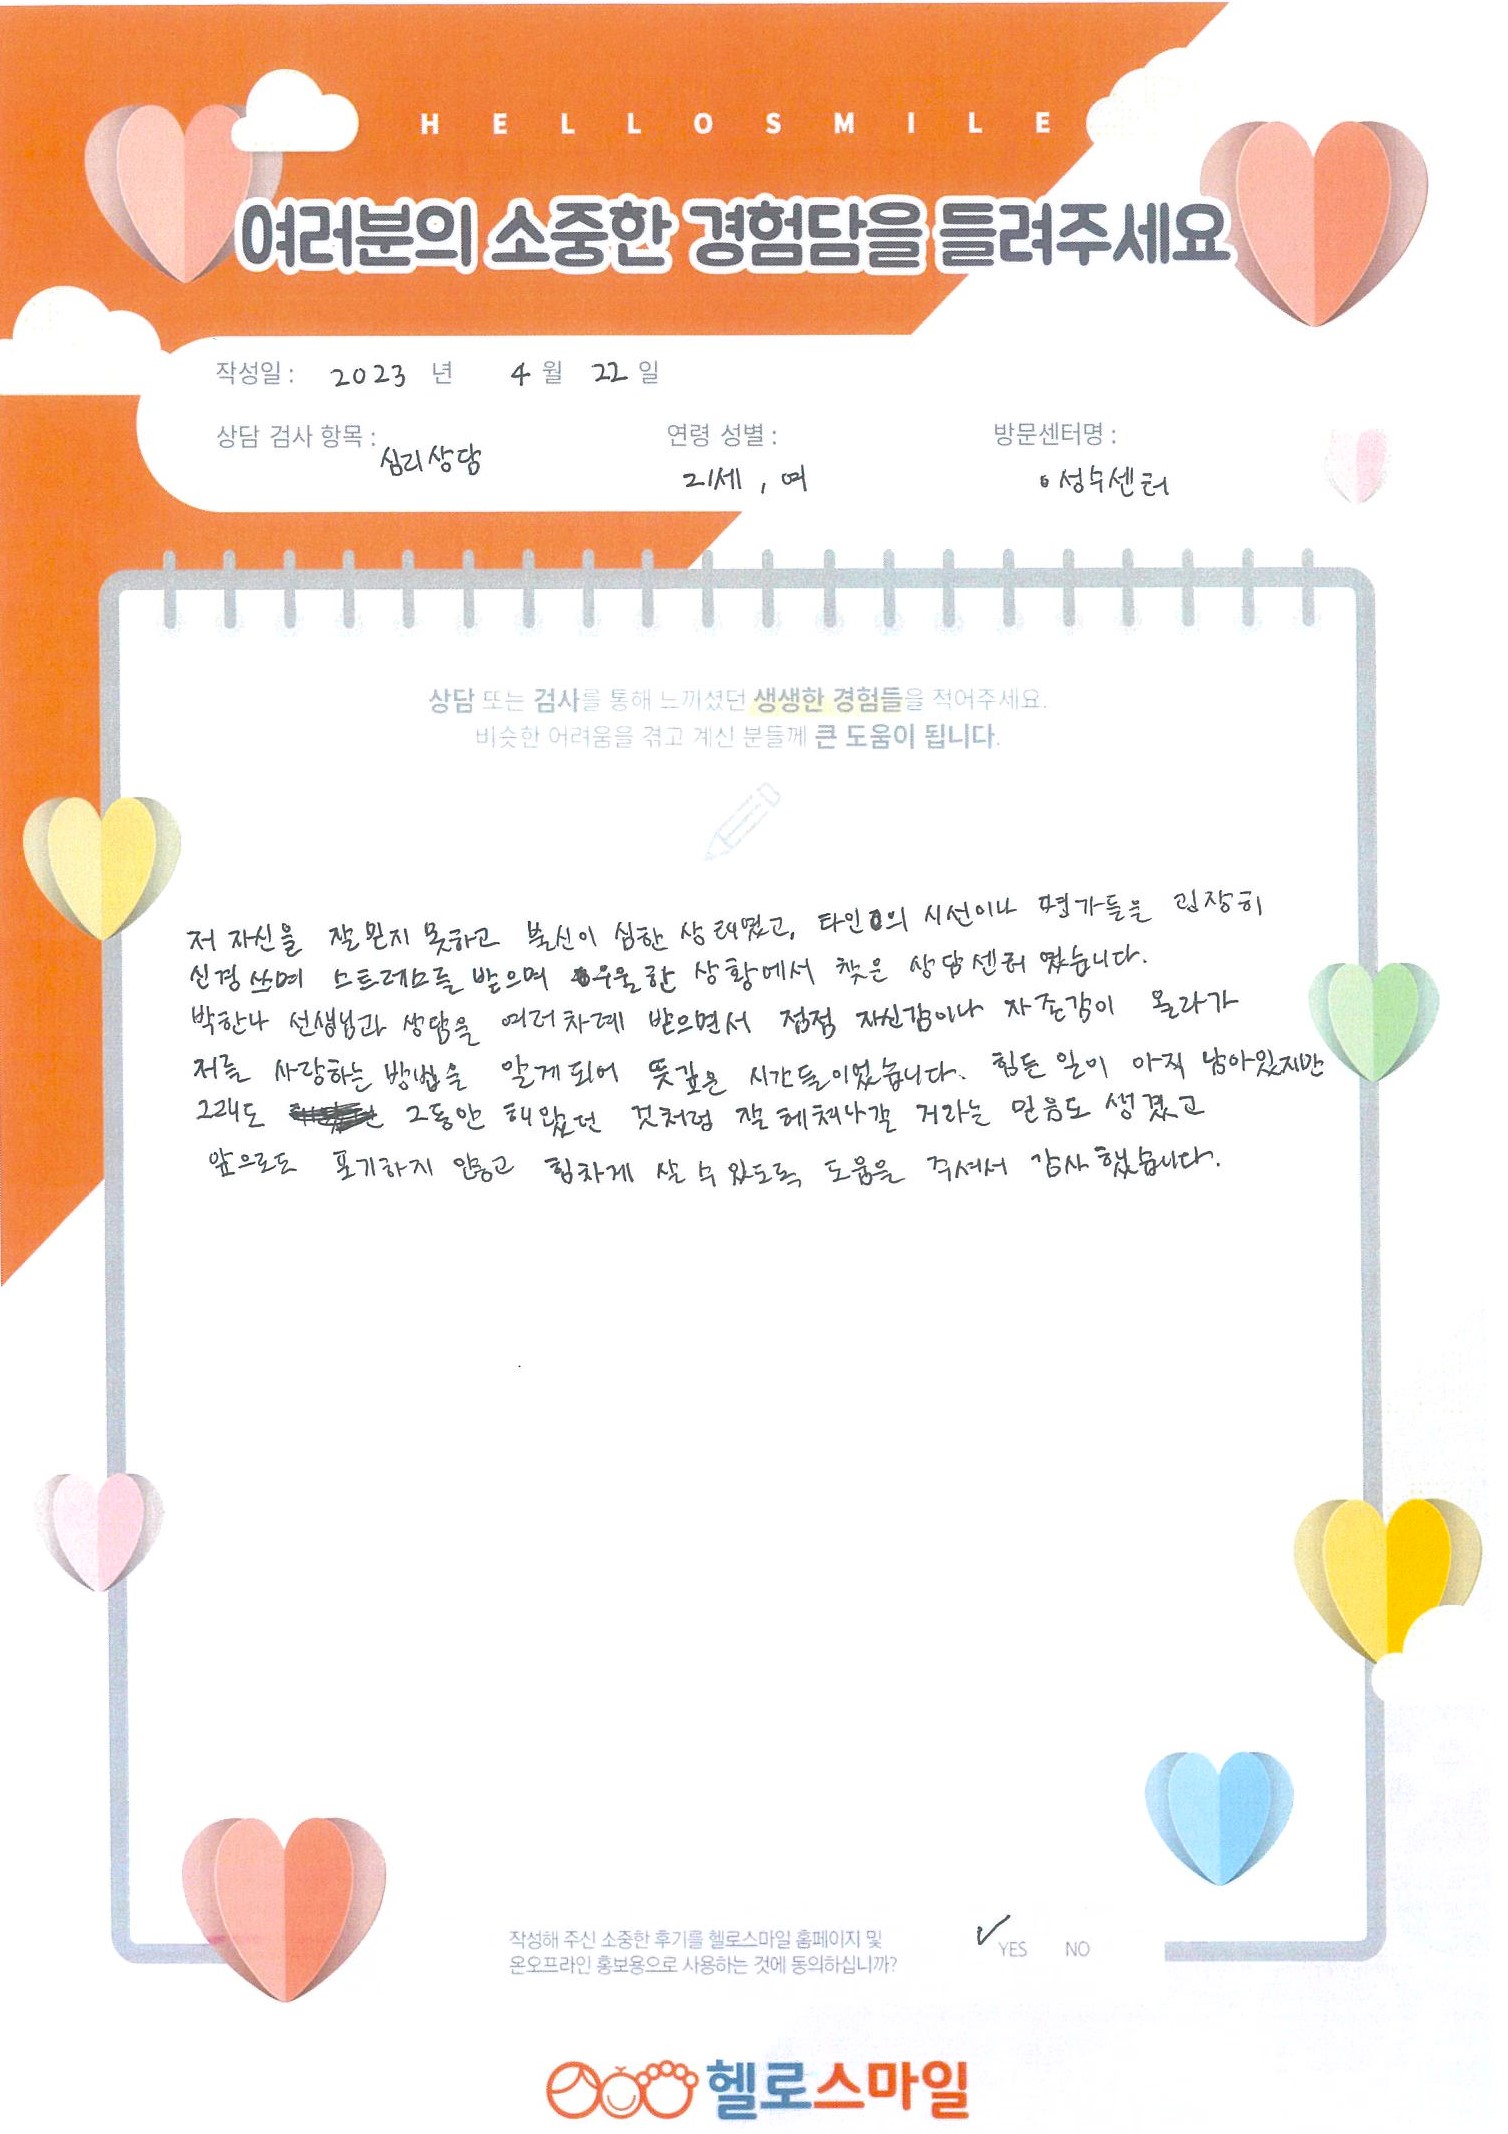 HELLOSMILE
여러분의 소중한 경험담을 들려주세요
작성일 : 2023 년 4 월 22 일
상담 검사 항목 : 심리상담 연령 성별 : 21세, 여 방문센터명 : 성수센터
상담 또는 검사를 통해 느끼셨던 생생한 경험들을 적어주세요.
비슷한 어려움을 겪고 계신 분들께 큰 도움이 됩니다.
저 자신을 잘 믿지 못하고 불신이 심한 상태였고, 타인의 시선이나 평가들을 굉장히
신경 쓰며 스트레스를 받으며 우울한 상황에서 찾은 상담센터 였습니다.
박한나 선생님과 상담을 여러차례 받으면서 점점 자신감이나 자존감이 올라가
저를 사랑하는 방법을 알게되어 뜻깊은 시간들이었습니다. 힘든 일이 아직 남아있지만
그래도 그동안 해왔던 것처럼 잘 헤쳐나갈 거라는 믿음도 생겼고
앞으로도 포기하지 않고 힘차게 살 수 있도록 도움을 주셔서 감사했습니다.
작성해 주신 소중한 후기를 헬로스마일 홈페이지 및
온오프라인 홍보용으로 사용하는 것에 동의하십니까? ✓ YES NO
헬로스마일